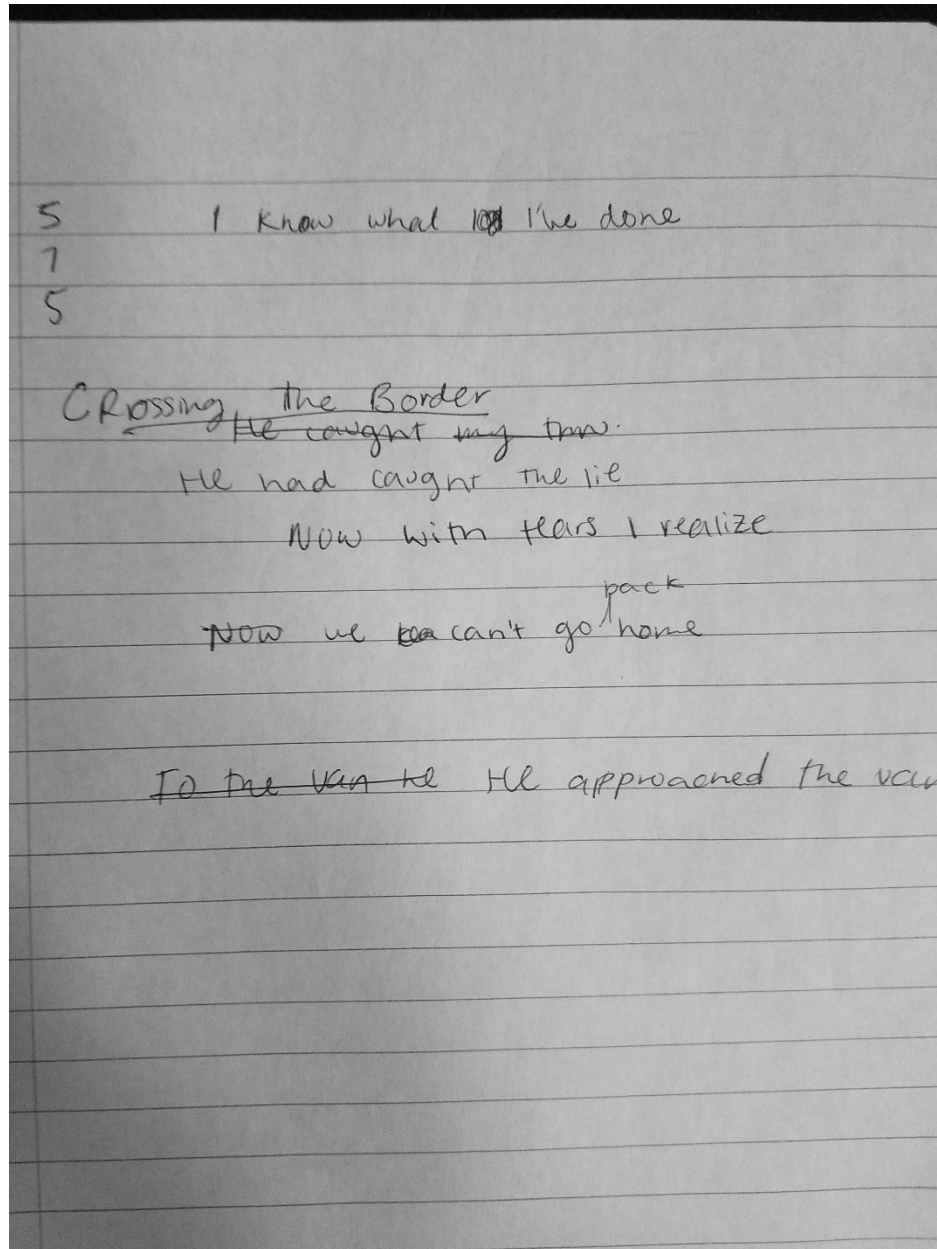 5 I know what I've done
7
5
Crossing the Border
He caught my
He had caught the lie
Now with tears I realize
pack
Now we can't go home
To the van he He approached the van